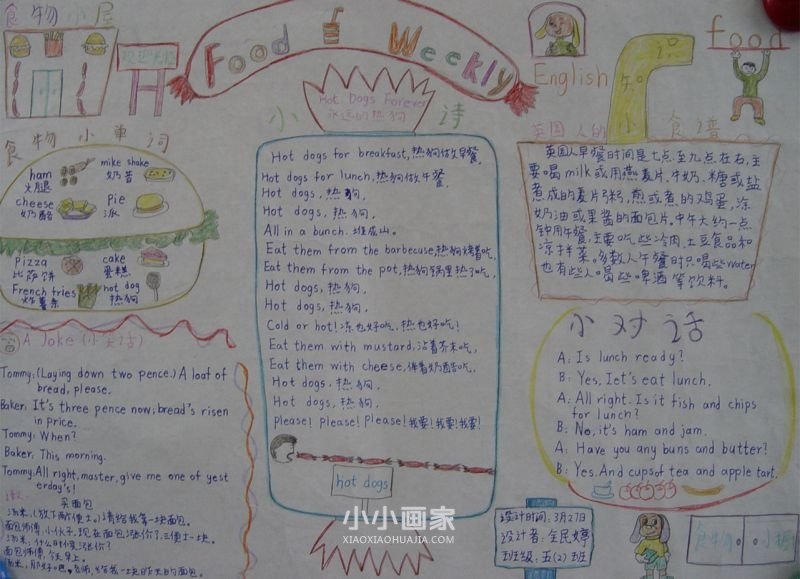 食物小屋
Food Weekly
English
知识
food
小诗
Hot Dogs Forever
永远的热狗
Hot dogs for breakfast,热狗做早餐,
Hot dogs for lunch,热狗做午餐,
Hot dogs,热狗,
Hot dogs,热狗,
All in a bunch.堆成山。
Eat them from the barbecuse,热狗烤着吃,
Eat them from the pot,热狗锅里热了吃,
Hot dogs,热狗,
Hot dogs,热狗,
Cold or hot!冻也好吃,热也好吃!
Eat them with mustard,沾着芥末吃,
Eat them with cheese,伴着奶酪吃,
Hot dogs,热狗,
Hot dogs,热狗,
Please! Please! Please!我要!我要!我要!
hot dogs
食物小单词
ham
火腿
mike shake
奶昔
cheese
奶酪
Pie
派
pizza
比萨饼
cake
蛋糕
French fries
炸薯条
hot dog
热狗
A Joke(小笑话)
Tommy:(Laying down two pence.) A loat of
bread, please.
Baker: It's three pence now; bread's risen
in price.
Tommy: When?
Baker: This morning.
Tommy: All right, master, give me one of yest
erday's!
买面包
英国人的小食谱
英国人早餐时间是七点至九点左右,主
要喝milk或用燕麦片、牛奶、糖或盐
煮成的麦片粥,煎或煮的鸡蛋,涂
奶油或果酱的面包片。中午大约一点
钟用午餐,主要吃些冷肉、土豆食品和
凉拌菜。多数人午餐时只喝些water
也有些人喝些啤酒等饮料。
小对话
A: Is lunch ready?
B: Yes, Iet's eat lunch.
A: All right. Is it fish and chips
for lunch?
B: No, it's ham and jam.
A: Have you any buns and butter?
B: Yes. And cups of tea and apple tart.
设计时间:3月27日
设计者:全民婷
班级:五(2)班
小小画家
XIAOXIAOHUAJIA.COM